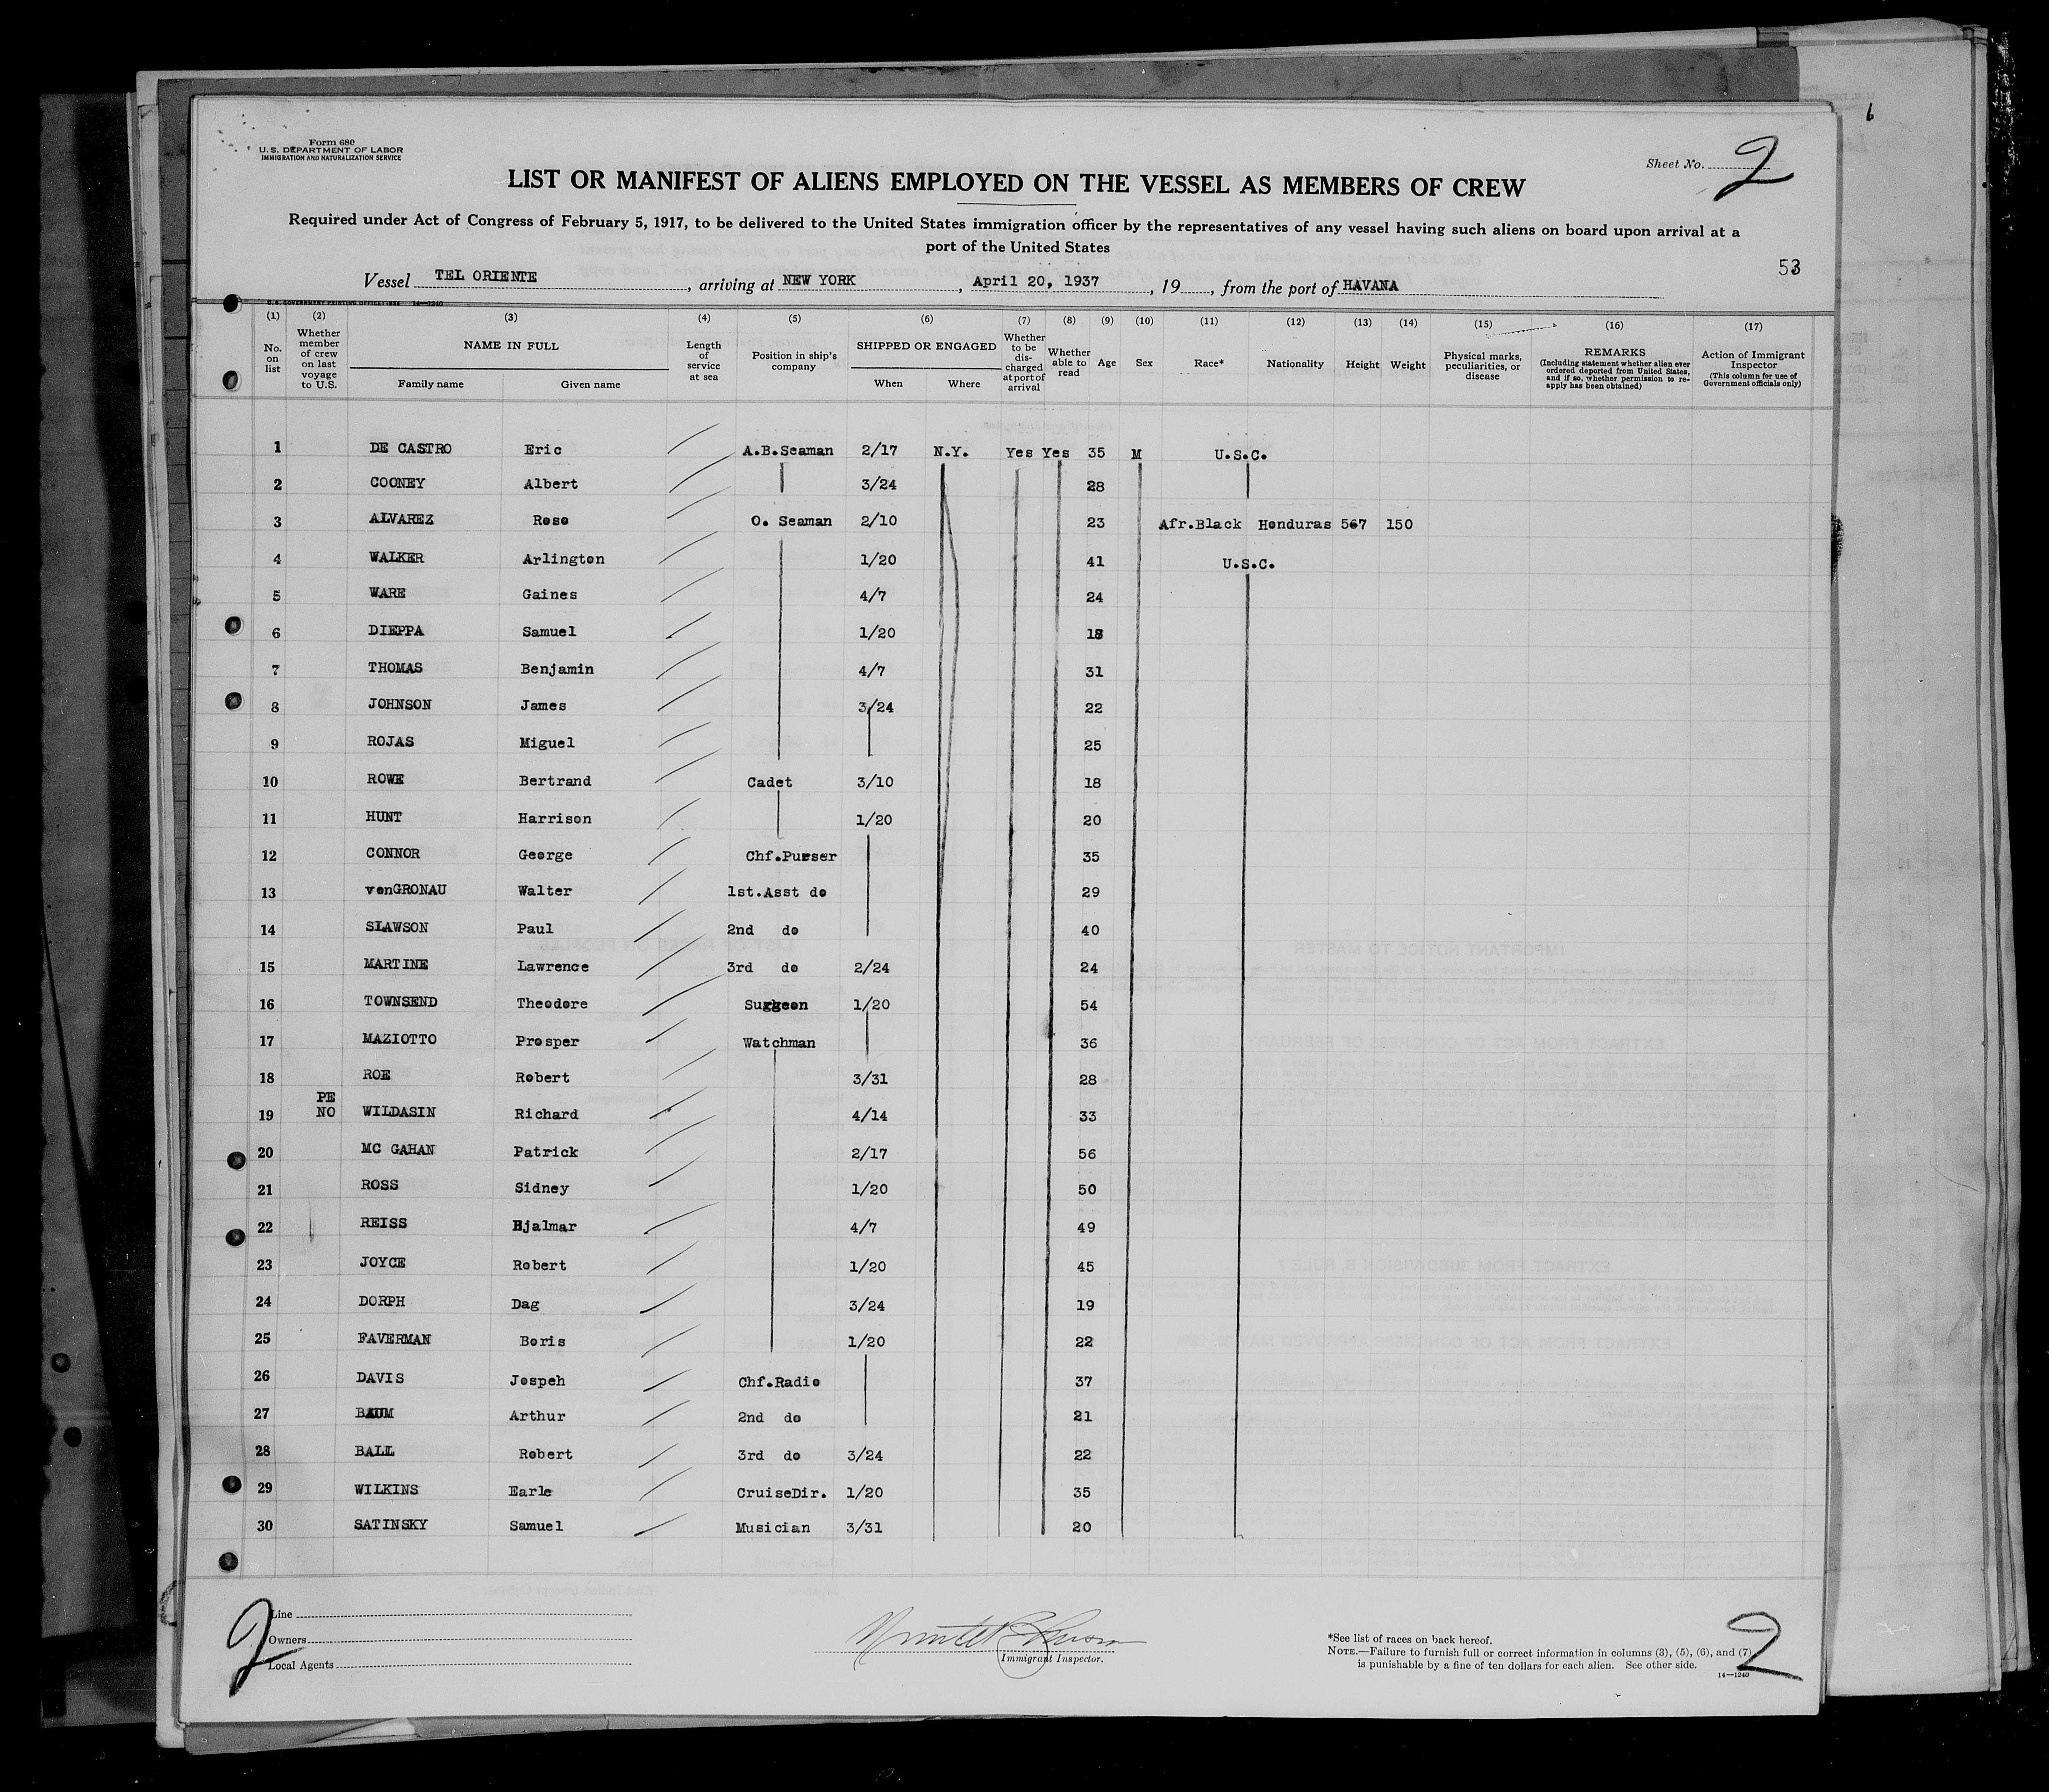 Form 680
U. S. DEPARTMENT OF LABOR
IMMIGRATION AND NATURALIZATION SERVICE
Sheet No. 2
LIST OR MANIFEST OF ALIENS EMPLOYED ON THE VESSEL AS MEMBERS OF CREW
Required under Act of Congress of February 5, 1917, to be delivered to the United States immigration officer by the representatives of any vessel having such aliens on board upon arrival at a
port of the United States
53
Vessel TEL ORIENTE, arriving at NEW YORK, April 20, 1937, 19, from the port of HAVANA
U. S. GOVERNMENT PRINTING OFFICE 14—1240
(1) No. on list (2) Whether member of crew on last voyage to U.S. (3) NAME IN FULL Family name Given name (4) Length of service at sea (5) Position in ship's company (6) SHIPPED OR ENGAGED When Where (7) Whether to be discharged at port of arrival (8) Whether able to read (9) Age (10) Sex (11) Race* (12) Nationality (13) Height (14) Weight (15) Physical marks, peculiarities, or disease (16) REMARKS (Including statement whether alien ever ordered deported from United States, and if so, whether permission to re-apply has been obtained) (17) Action of Immigrant Inspector (This column for use of Government officials only)
1 DE CASTRO Eric A.B.Seaman 2/17 N.Y. Yes Yes 35 M U.S.C.
2 COONEY Albert 3/24 28
3 ALVAREZ Rose O. Seaman 2/10 23 Afr.Black Honduras 567 150
4 WALKER Arlington 1/20 41 U.S.C.
5 WARE Gaines 4/7 24
6 DIEPPA Samuel 1/20 18
7 THOMAS Benjamin 4/7 31
8 JOHNSON James 3/24 22
9 ROJAS Miguel 25
10 ROWE Bertrand Cadet 3/10 18
11 HUNT Harrison 1/20 20
12 CONNOR George Chf.Purser 35
13 vonGRONAU Walter 1st.Asst do 29
14 SLAWSON Paul 2nd do 40
15 MARTINE Lawrence 3rd do 2/24 24
16 TOWNSEND Theodore Surgeon 1/20 54
17 MAZIOTTO Prosper Watchman 36
18 ROE Robert 3/31 28
PE
19 NO WILDASIN Richard 4/14 33
20 MC GAHAN Patrick 2/17 56
21 ROSS Sidney 1/20 50
22 REISS Hjalmar 4/7 49
23 JOYCE Robert 1/20 45
24 DORPH Dag 3/24 19
25 FAVERMAN Boris 1/20 22
26 DAVIS Jospeh Chf.Radio 37
27 BAUM Arthur 2nd do 21
28 BALL Robert 3rd do 3/24 22
29 WILKINS Earle CruiseDir. 1/20 35
30 SATINSKY Samuel Musician 3/31 20
2
Line
Owners
Local Agents
Immigrant Inspector.
*See list of races on back hereof.
NOTE.—Failure to furnish full or correct information in columns (3), (5), (6), and (7)
is punishable by a fine of ten dollars for each alien. See other side.
14—1240
2